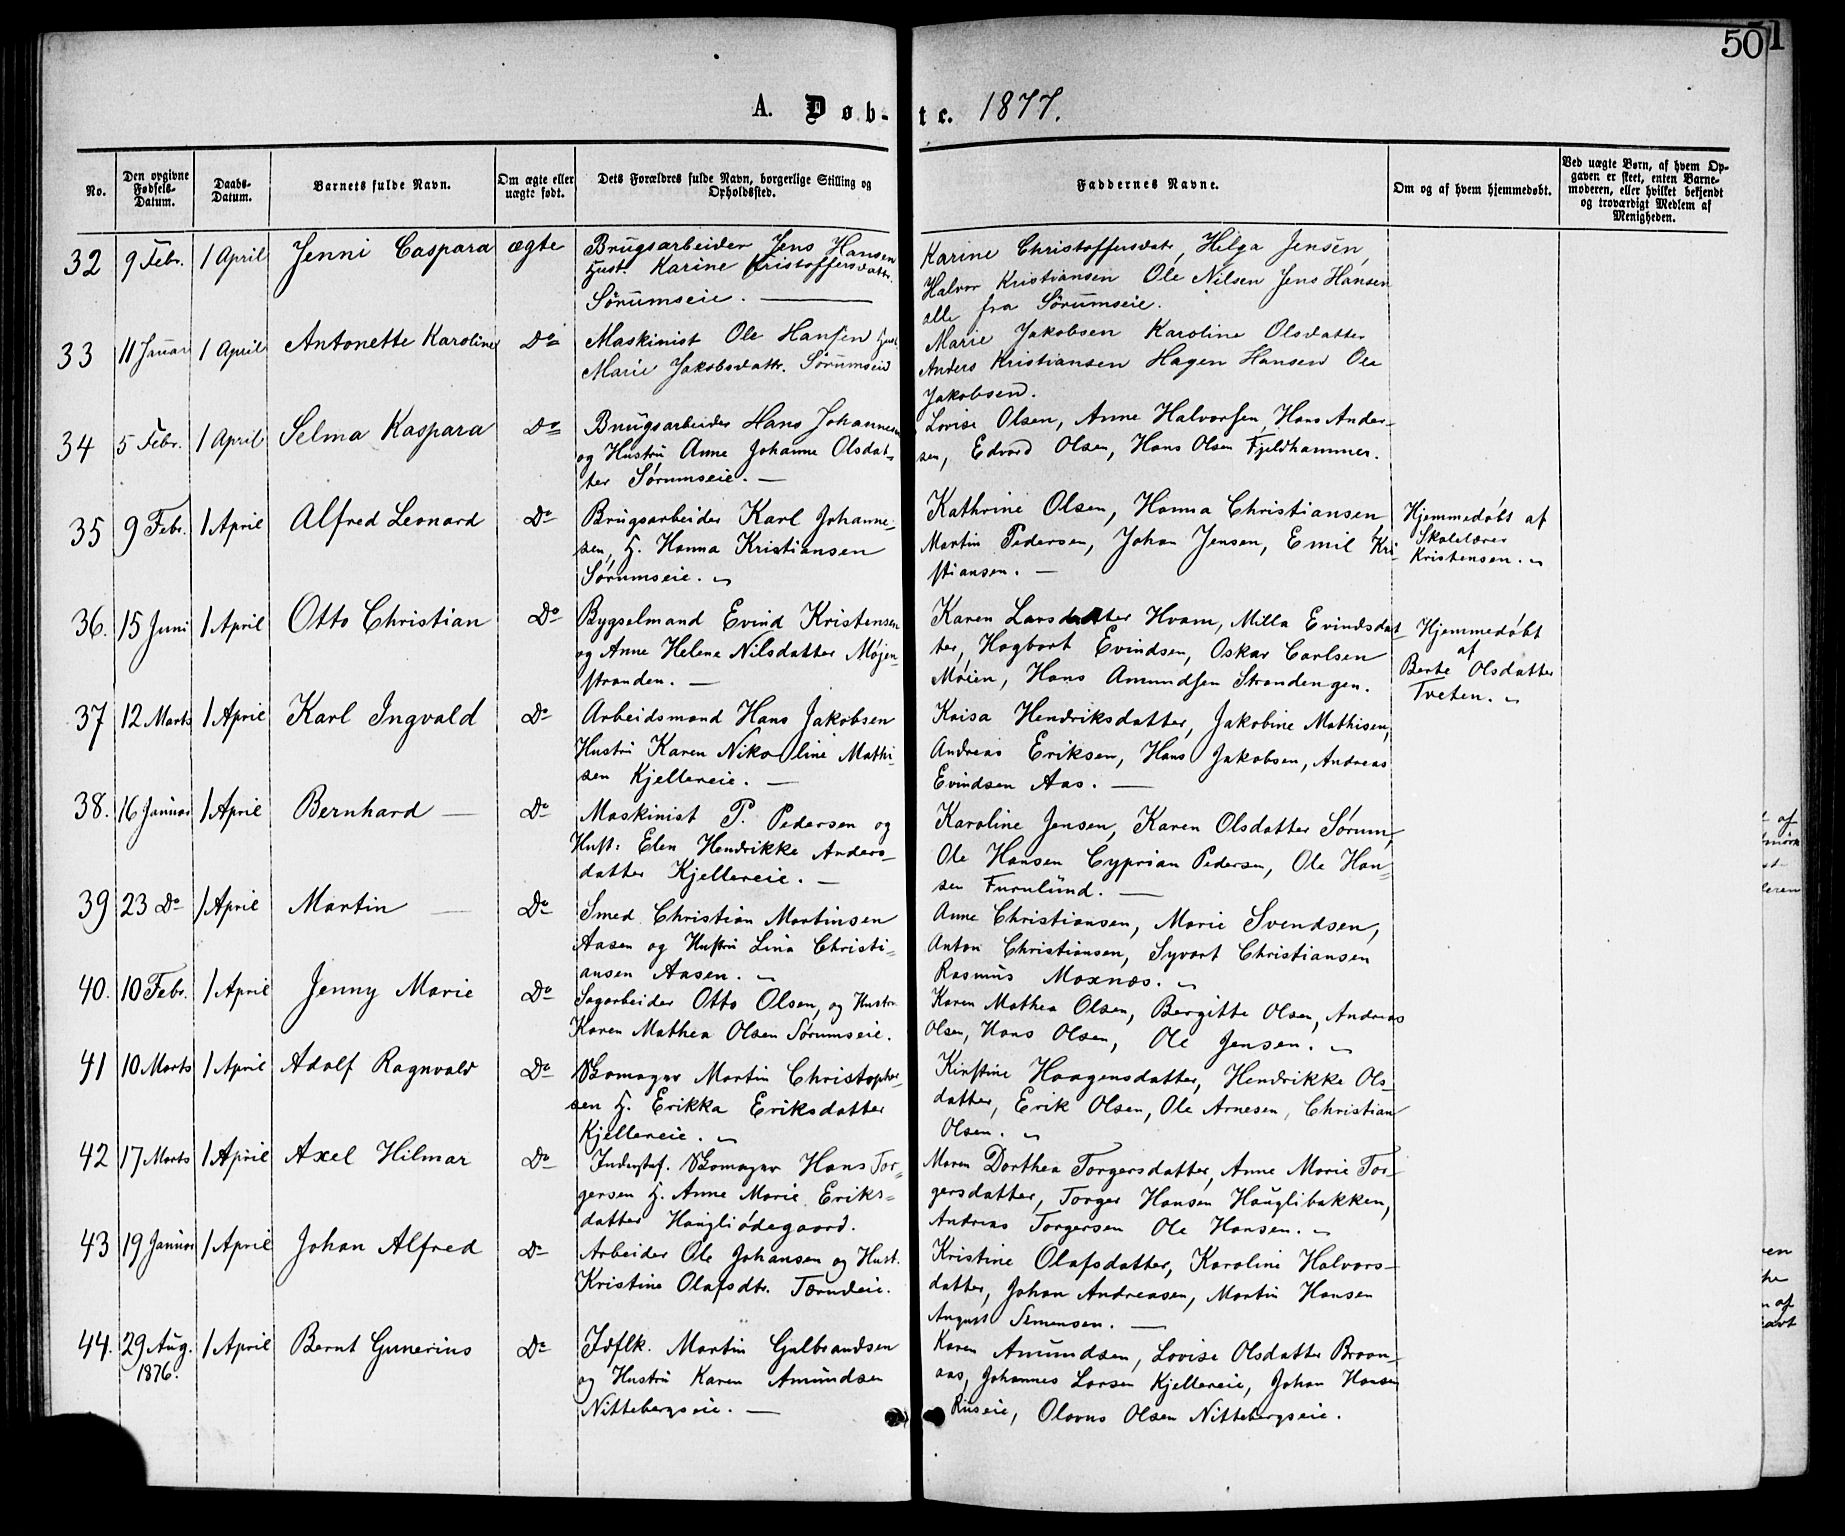 50
A. Døb-te. 1877.
No.
Den opgivne Fødsels-Datum.
Daabs-Datum.
Barnets fulde Navn.
Om ægte eller uægte født.
Dets Forældres fulde Navn, borgerlige Stilling og Opholdssted.
Faddernes Navne.
Om og af hvem hjemmedøbt.
Ved uægte Børn, af hvem Opgaven er skeet, enten Barnemoderen, eller hvilket bekjendt og troværdigt Medlem af Menigheden.
32 9 Febr. 1 April Jenni Caspara ægte Brugsarbeider Jens Hansen
Hust. Karine Kristoffersdattr.
Sörumseie.
Karine Christoffersdatr, Hilga Jensen,
Halvor Kristiansen Ole Nilsen Jens Hansen
alle fra Sörumseie.
33 11 Januar 1 April Antonette Karoline Do Maskinist Ole Hansen Hust.
Marie Jakobsdattr. Sörumseie
Marie Jakobsen Karoline Olsdatter
Anders Kristiansen Hagen Hansen Ole
Jakobsen.
34 5 Febr. 1 April Selma Kaspara Do Brugsarbeider Hans Johannesen
og Hustru Anne Johanne Olsdat-
ter Sørumseie. —
Lovise Olsen, Anne Halvorsen, Hans Ander-
sen, Edvard Olsen, Hans Olsen Fjeldhammer.
35 9 Febr. 1 April Alfred Leonard Do Brugsarbeider Karl Johanne-
sen, H. Hanna Kristiansen
Sørumseie.
Kathrine Olsen, Hanna Christiansen,
Martin Pedersen, Johan Jensen, Emil Kri-
stiansen. —
Hjemmedøbt af
Skolelærer
Kristensen.
36. 15 Juni 1 April Otto Christian Do Bygselmand Evind Kristensen
og Anne Helene Nilsdatter Møjen-
stranden. —
Karen Larsdatter Hvam, Milla Evindsdat-
ter, Hagbart Evindsen, Oskar Carlsen
Møien, Hans Amundsen Strandengen.
Hjemmedøbt
af
Berte Olsdatter
Tveten.
37 12 Marts 1 April Karl Ingvald Do Arbeidsmand Hans Jakobsen
Hustru Karen Nikoline Mathi-
sen Kjellereie. —
Kaisa Hendriksdatter, Jakobine Mathisen,
Andreas Eriksen, Hans Jakobsen, Andreas
Evindsen Aas. —
38. 16 Januar 1 April Bernhard — Do Maskinist P. Pedersen og
Hust: Elen Hendrikke Anders-
datter Kjellereie. —
Karoline Jensen, Karen Olsdatter Sørum,
Ole Hansen Cyprian Pedersen, Ole Han-
sen Furulund. —
39 23 Do 1 April Martin — Do Smed Christian Martinsen
Aasen og Hustru Lina Christi-
ansen Aasen.
Anne Christiansen, Marie Svendsen,
Anton Christiansen, Syvart Christiansen
Rasmus Moxnæs.
40. 10 Febr. 1 April Jenny Marie Do Sagarbeider Otto Olsen, og Hustr.
Karen Mathea Olsen Sørumseie.
Karen Mathea Olsen, Bergitte Olsen, Andreas
Olsen, Hans Olsen, Ole Jensen.
41 10 Marts 1 April Adolf Ragnvald Do Skomager Martin Christopher-
sen H. Erikka Eriksdatter
Kjellereie.
Kirstine Haagensdatter, Hendrikke Ols-
datter, Erik Olsen, Ole Arnesen, Christian
Olsen.
42 17 Marts 1 April Axel Hilmar Do Inderst og Skomager Hans Tor-
gersen H. Anne Marie Eriks-
datter Haugliødegaard.
Maren Dorthea Torgersdatter, Anne Marie Tor-
gersdatter, Torger Hansen Hauglibakken,
Andreas Torgersen Ole Hansen.
43 19 Januar 1 April Johan Alfred Do Arbeider Ole Johansen og Hust.
Kristine Olafsdtr. Tærudeie.
Kristine Olafsdatter, Karoline Halvors-
datter, Johan Andreasen, Martin Hansen
August Simensen. —
44. 29 Aug. 1876. 1 April Bernt Gunerius Do Idflk. Martin Gulbrandsen
og Hustru Karen Amundsen
Nittebergseie. —
Karen Amundsen, Lovise Olsdatter Braan-
aas, Johannes Larsen Kjellereie, Johan Hansen
Riiseie, Olavus Olsen Nittebergseie.